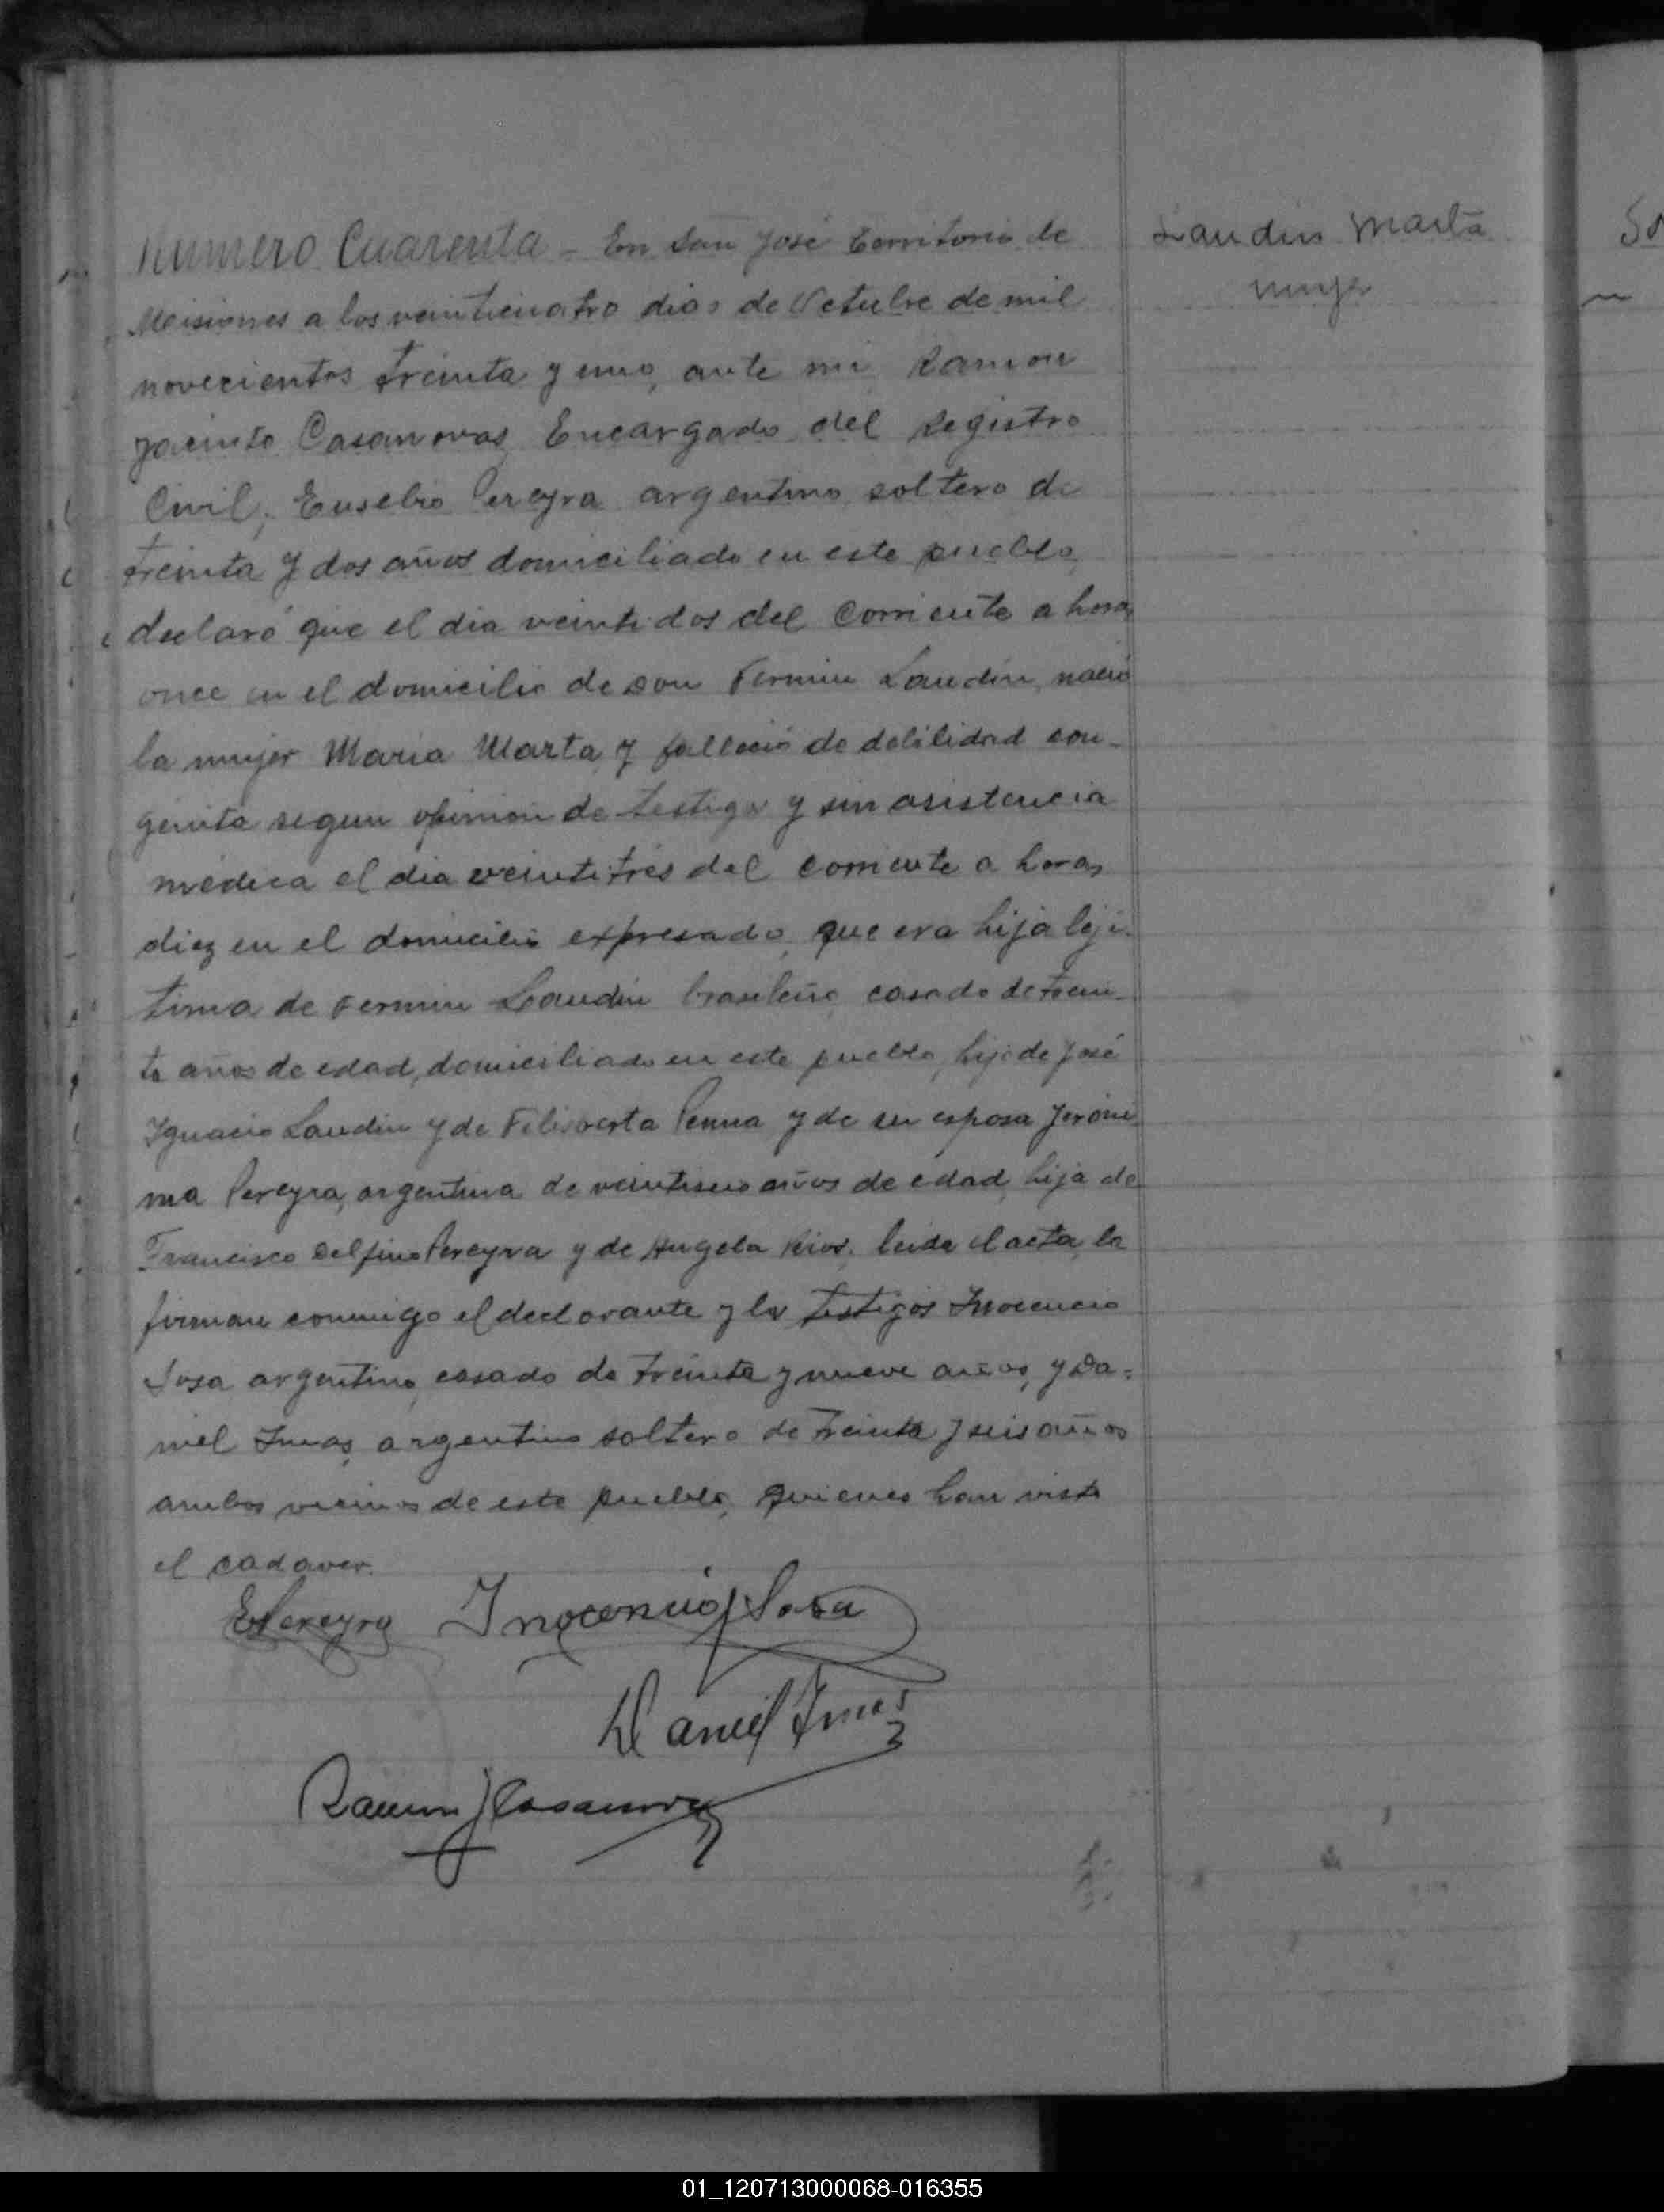 Numero Cuarenta - En San José Territorio de
Misiones a los veinticuatro dias de Octubre de mil
novecientos treinta y uno, ante mi Ramon
Jacinto Casanovas, Encargado del Registro
Civil; Eusebio Pereyra argentino soltero de
treinta y dos años domiciliado en este pueblo,
declaró que el dia veintidos del corriente a horas
once en el domicilio de Don Fermin Landin, nació
la mujer Maria Marta y falleció de debilidad con-
génita segun opinion de testigos y sin asistencia
médica el dia veintitrés del corriente a horas
diez en el domicilio expresado, que era hija leji-
tima de Fermin Landin brasileño casado de trein-
ta años de edad, domiciliado en este pueblo, hijo de José
Ignacio Landin y de Felisberta Penna y de su esposa Jeróni-
ma Pereyra, argentina de años de edad, hija de
Francisco Delfino Pereyra y de Angela Rios. leida el acta, la
firman conmigo el declarante y los testigos Inocencio
Sosa argentino, casado de treinta y nueve años, y Da=
niel Imas, argentino soltero de treinta y seis años
ambos vecinos de este pueblo, quienes han visto
el cadaver.
EPereyra Inocencio Sosa
Daniel Imas
Ramon J Casanovas
Landin Marta
mujer
01_120713000068-016355